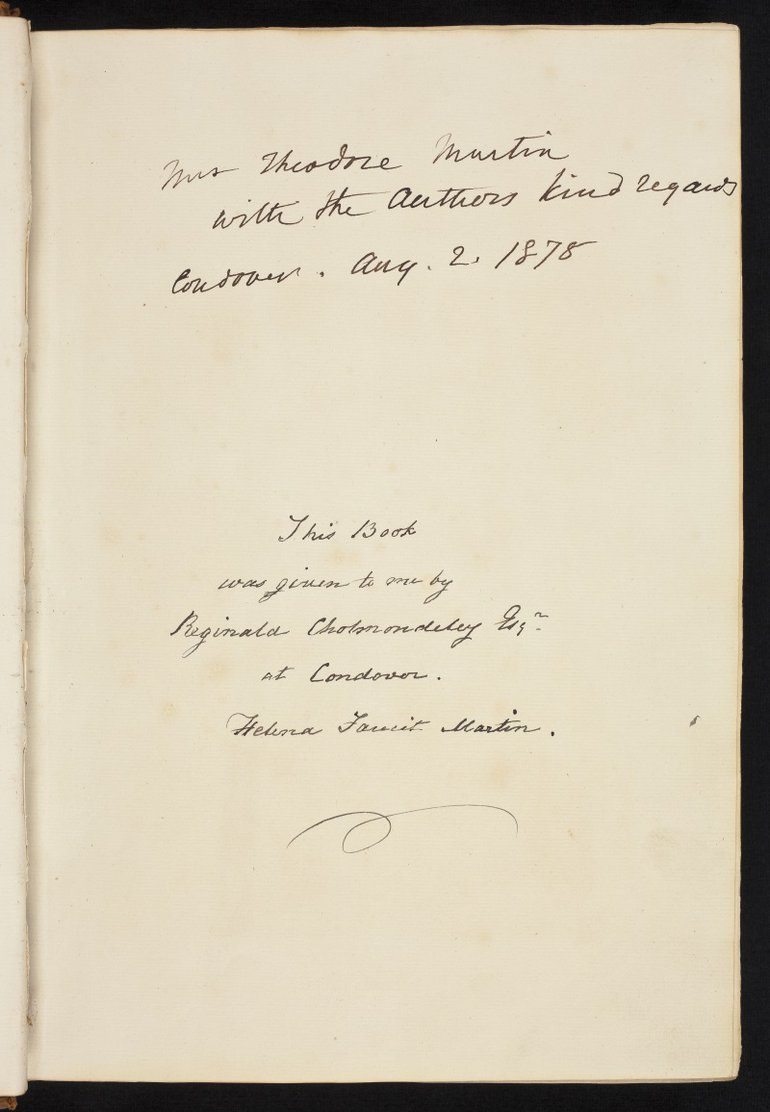 Mrs Theodore Martin
with the Authors kind regards
Condover. Aug. 2. 1878
This Book
was given to me by
Reginald Cholmondeley Esqr.
at Condover.
Helena Faucit Martin.